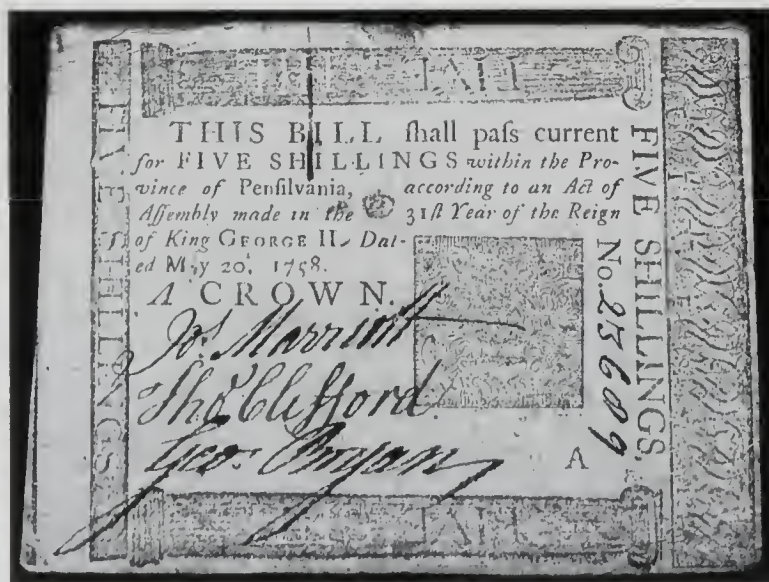 THIS BILL ſhall paſs current
for FIVE SHILLINGS within the Pro-
vince of Penſilvania, according to an Act of
Aſſembly made in the 31ſt Year of the Reign
of King GEORGE II. Dat-
ed May 20, 1758.
A CROWN.
Jos. Marriott
Thos Clifford
Geo. Bryan
A
FIVE SHILLINGS.
No. 23609
FIVE SHILLINGS